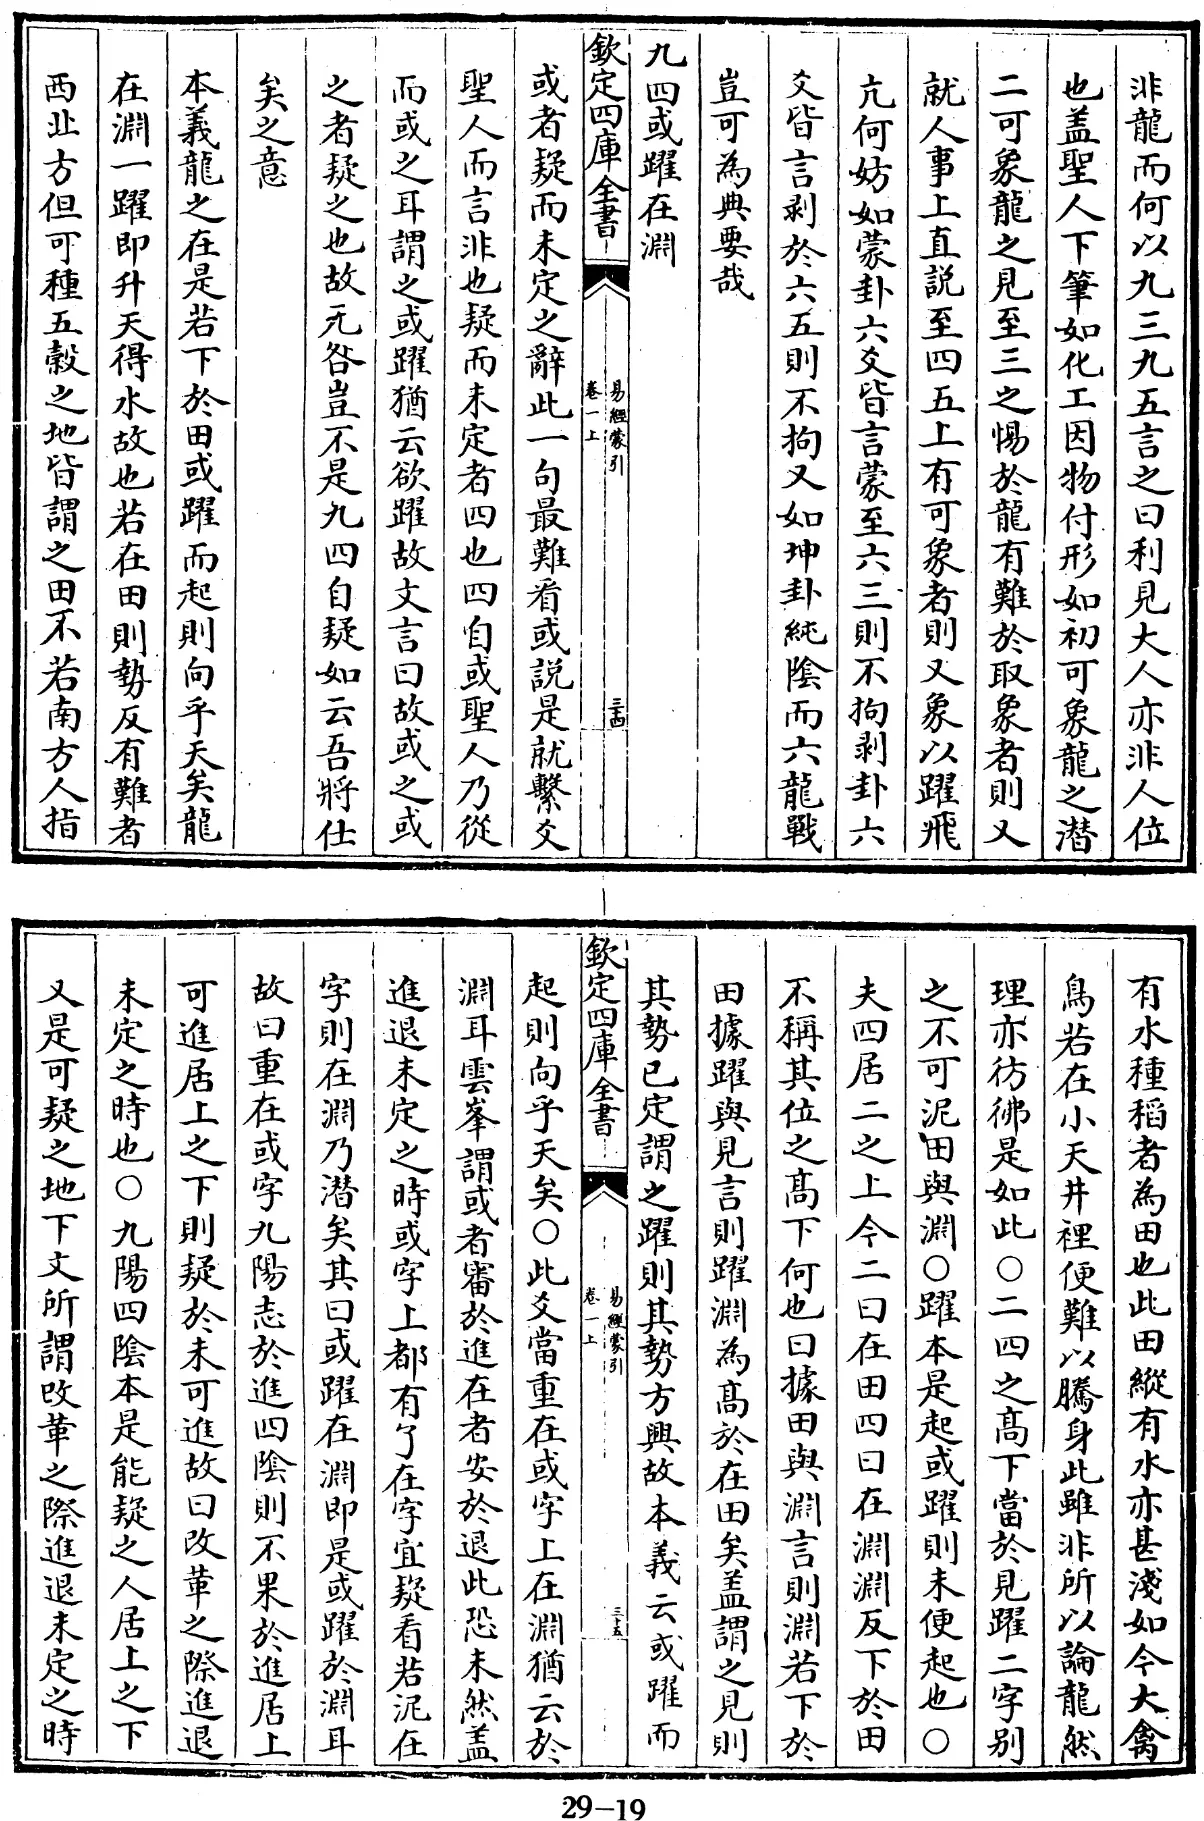 非龍而何以九三九五言之曰利見大人亦非人位
也盖聖人下筆如化工因物付形如初可象龍之潛
二可象龍之見至三之惕於龍有難於取象者則又
就人事上直説至四五上有可象者則又象以躍飛
亢何妨如蒙卦六爻皆言蒙至六三則不拘剥卦六
爻皆言剥於六五則不拘又如坤卦純隂而六龍戰
豈可為典要哉
九四或躍在淵
欽定四庫全書
易經蒙引
卷一上
三十四
或者疑而未定之辭此一句最難看或説是就繫爻
聖人而言非也疑而未定者四也四自或聖人乃從
而或之耳謂之或躍猶云欲躍故文言曰故或之或
之者疑之也故无咎豈不是九四自疑如云吾將仕
矣之意
本義龍之在是若下於田或躍而起則向乎天矣龍
在淵一躍即升天得水故也若在田則勢反有難者
西北方但可種五穀之地皆謂之田不若南方人指
有水種稻者為田也此田縱有水亦甚淺如今大禽
鳥若在小天井裡便難以騰身此雖非所以論龍然
理亦彷彿是如此○二四之髙下當於見躍二字别
之不可泥田與淵○躍本是起或躍則未便起也○
夫四居二之上今二曰在田四曰在淵淵反下於田
不稱其位之髙下何也曰據田與淵言則淵若下於
田據躍與見言則躍淵為髙於在田矣盖謂之見則
其勢已定謂之躍則其勢方興故本義云或躍而
欽定四庫全書
易經蒙引
卷一上
三十五
起則向乎天矣○此爻當重在或字上在淵猶云於
淵耳雲峯謂或者審於進在者安於退此恐未然盖
進退未定之時或字上都有了在字宜疑看若泥在
字則在淵乃潜矣其曰或躍在淵即是或躍於淵耳
故曰重在或字九陽志於進四隂則不果於進居上
可進居上之下則疑於未可進故曰改革之際進退
未定之時也○九陽四隂本是能疑之人居上之下
又是可疑之地下文所謂改革之際進退未定之時
29-19